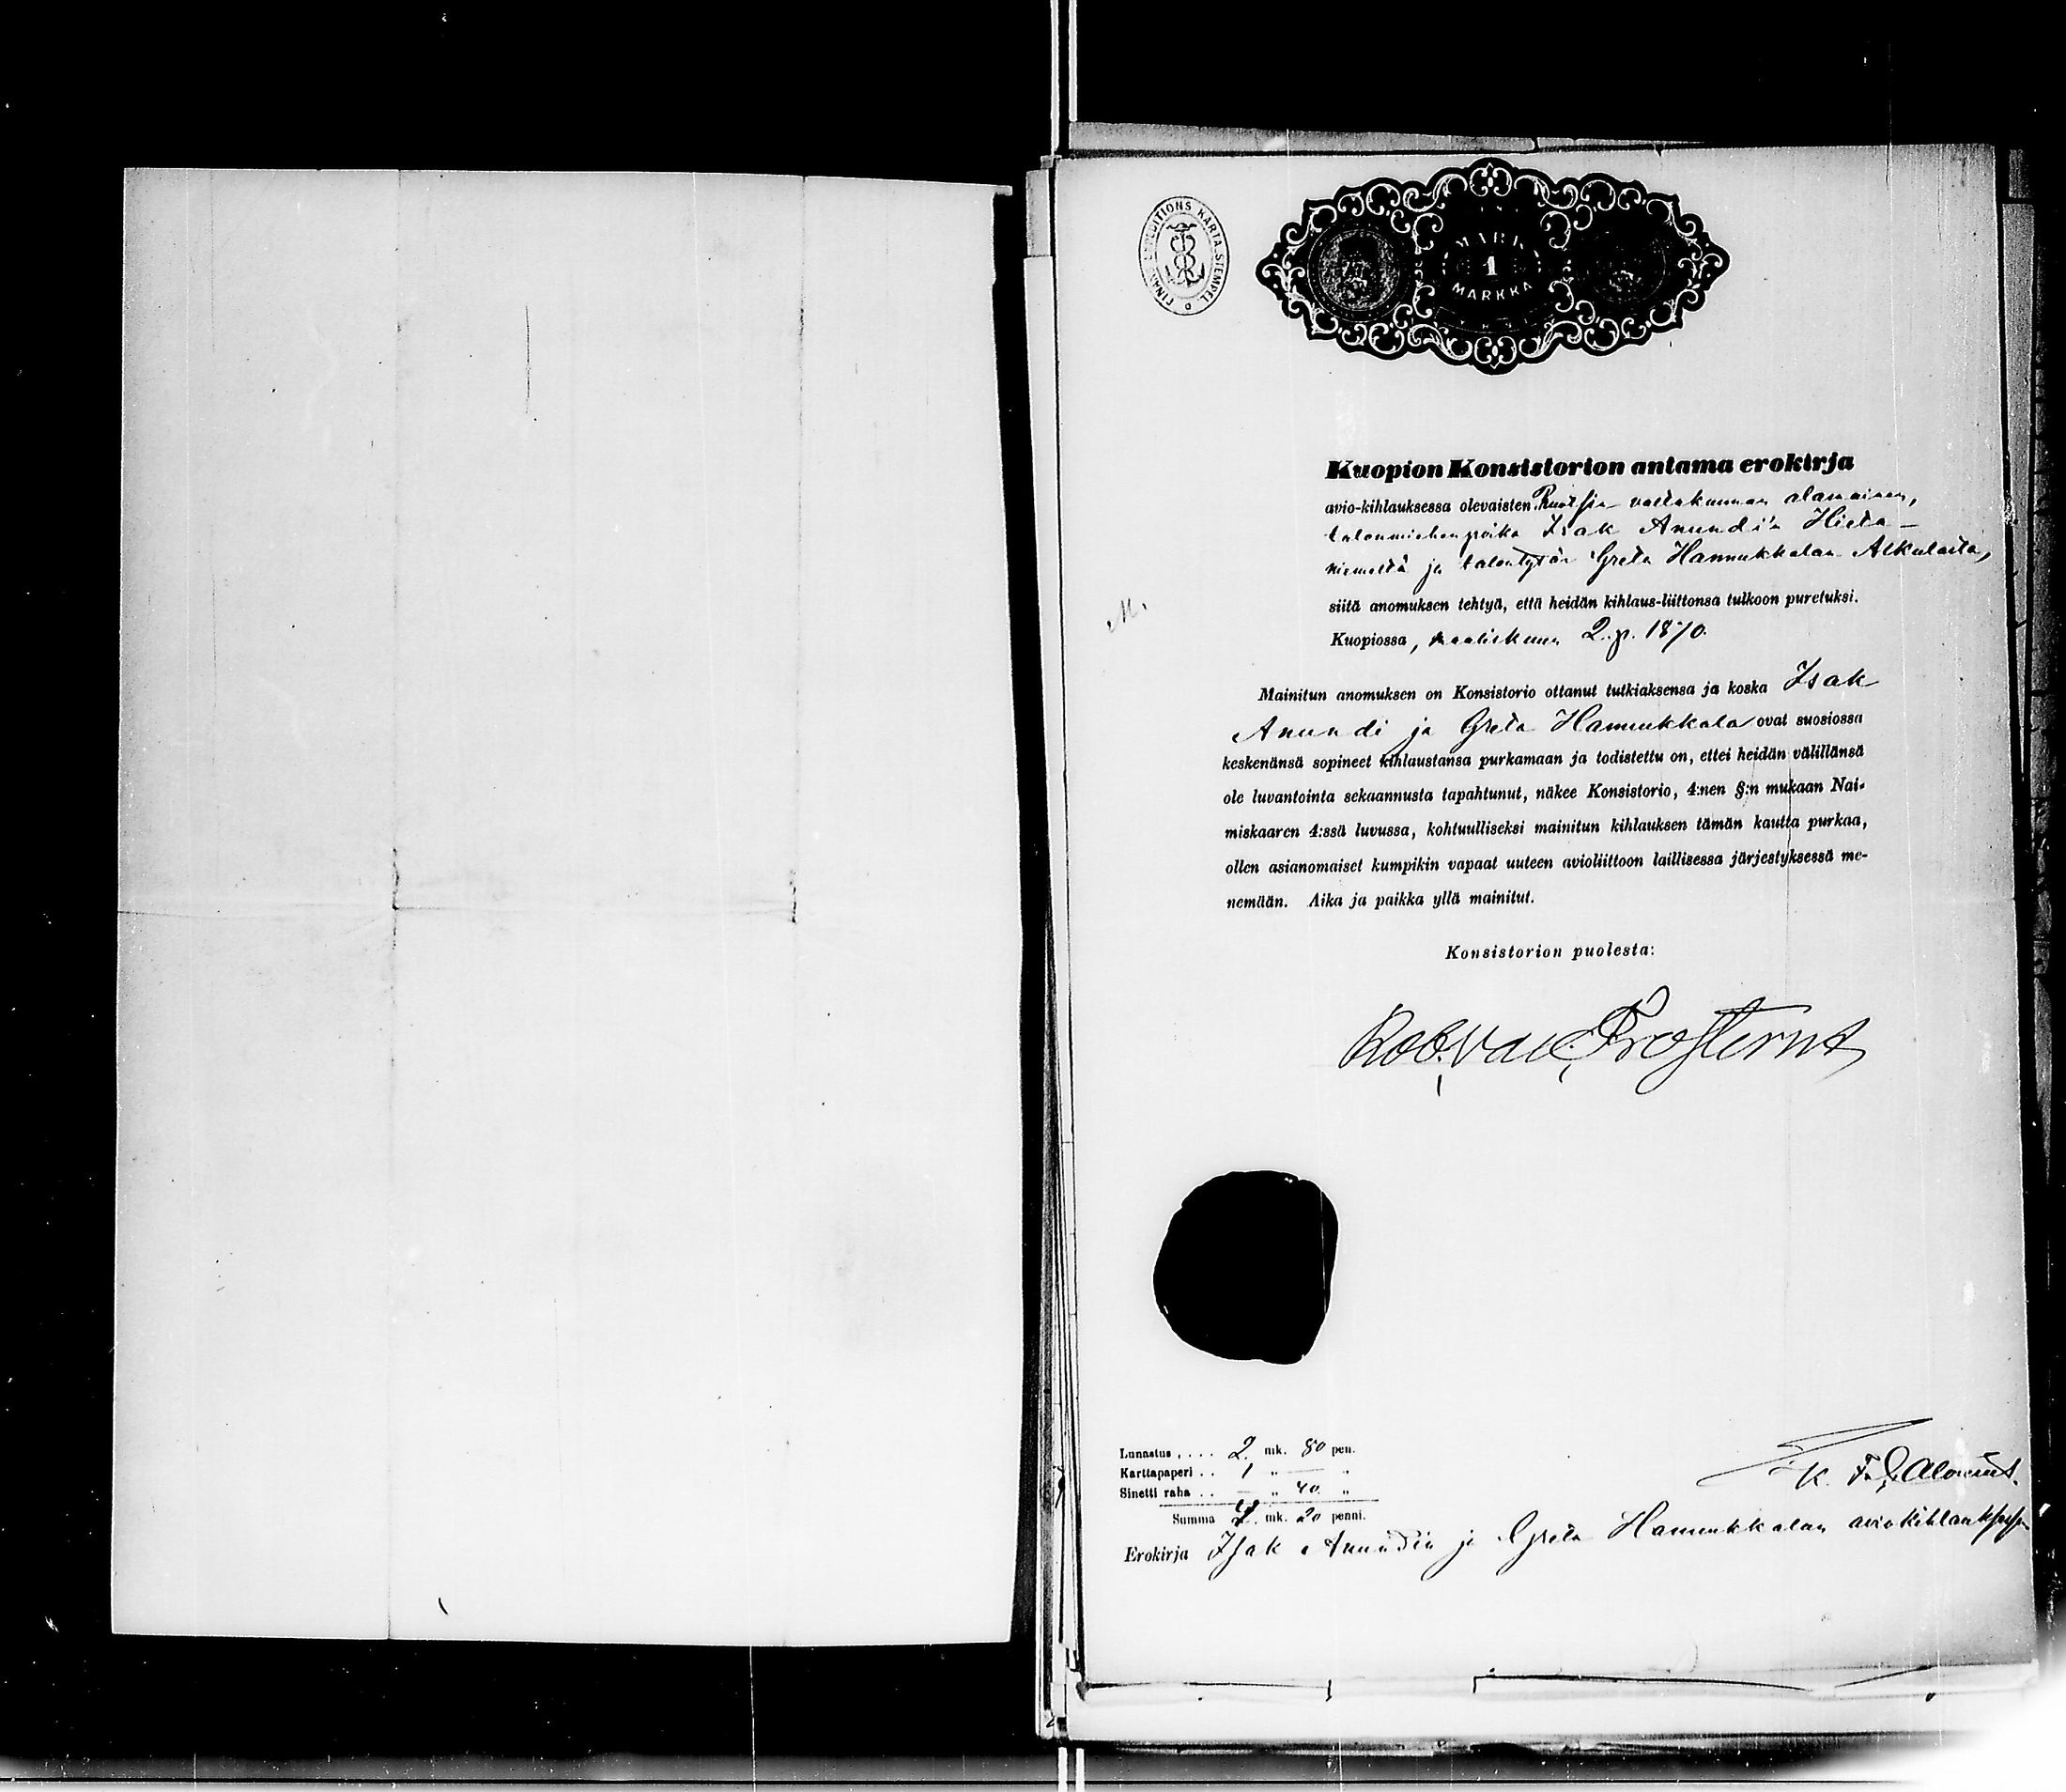 FINANS EXPEDITIONS KARTA STEMPEL
MARK
1
MARKKA
Kuopion Konsistorion antama erokirja
avio-kihlauksessa olevaisten Ruotsin valtakunnan alamaisen,
talonmiehenpoika Isak Anundi'n Hieta-
niemeltä ja talontytär Greta Hannukkalan Alkulasta,
siitä anomuksen tehtyä, että heidän kihlaus-liittonsa tulkoon puretuksi.
Kuopiossa, maaliskuun 2. p. 1870.
M.
Mainitun anomuksen on Konsistorio ottanut tutkiaksensa ja koska Isak
Anundi ja Greta Hannukkala ovat suosiossa
keskenänsä sopineet kihlaustansa purkamaan ja todistettu on, ettei heidän välillänsä
ole luvantointa sekaannusta tapahtunut, näkee Konsistorio, 4:nen §:n mukaan Nai-
miskaaren 4:ssä luvussa, kohtuulliseksi mainitun kihlauksen tämän kautta purkaa,
ollen asianomaiset kumpikin vapaat uuteen avioliittoon laillisessa järjestyksessä me-
nemään. Aika ja paikka yllä mainitut.
Konsistorion puolesta:
Rob. Val. Frosterus
Lunastus .... 2 mk. 80 pen.
Karttapaperi .. 1 " — "
Sinetti raha .. — " 40 "
Summa 4. mk. 20 penni.
K. F.
Erokirja Isak Anundin ja Greta Hannukkalan aviokihlauksessa